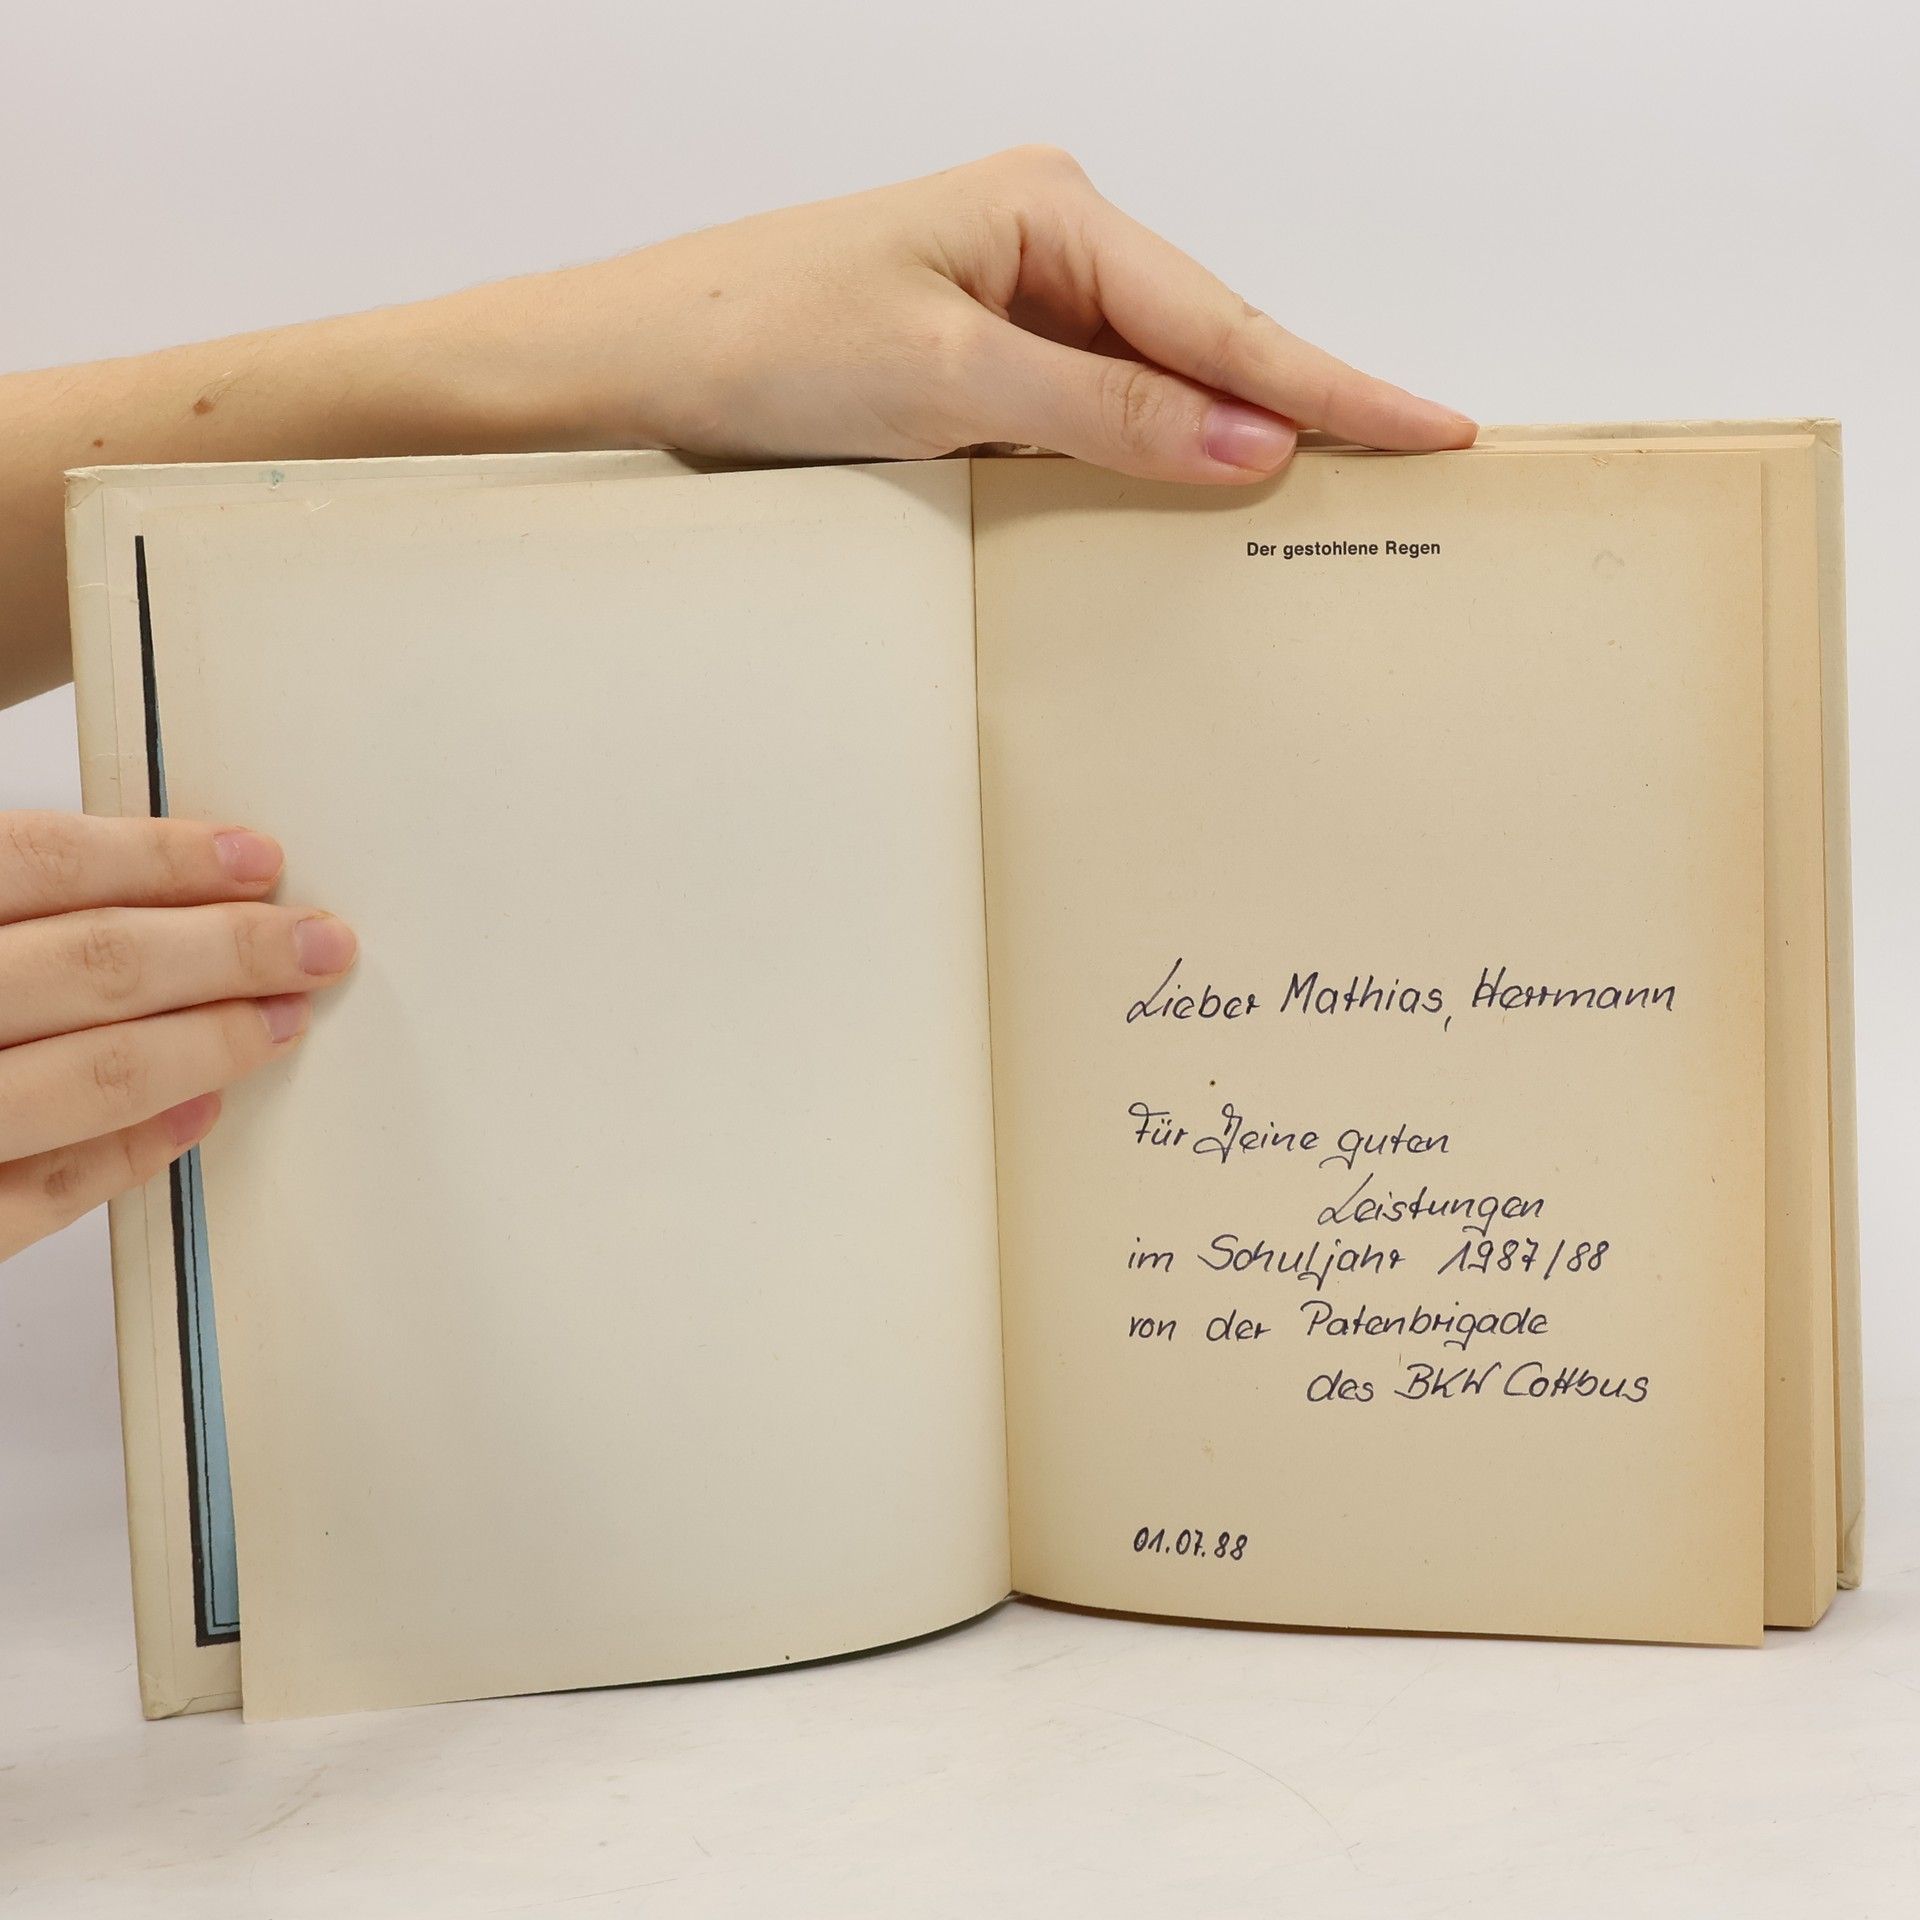 Der gestohlene Regen
Lieber Mathias, Herrmann
Für Deine guten
Leistungen
im Schuljahr 1987/88
von der Patenbrigade
des BKW Cottbus
01.07.88